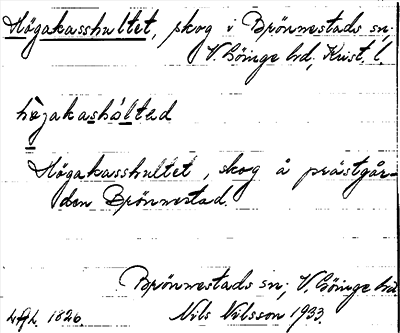 Högakasshultet, skog i Brönnestads sn;
V. Göinge hd; Krist. l.
högakashòlted
Högakasshultet, skog å prästgår-
den Brönnestad.
Brönnestads sn; V. Göinge hd.
1826. Nils Nilsson 1933.